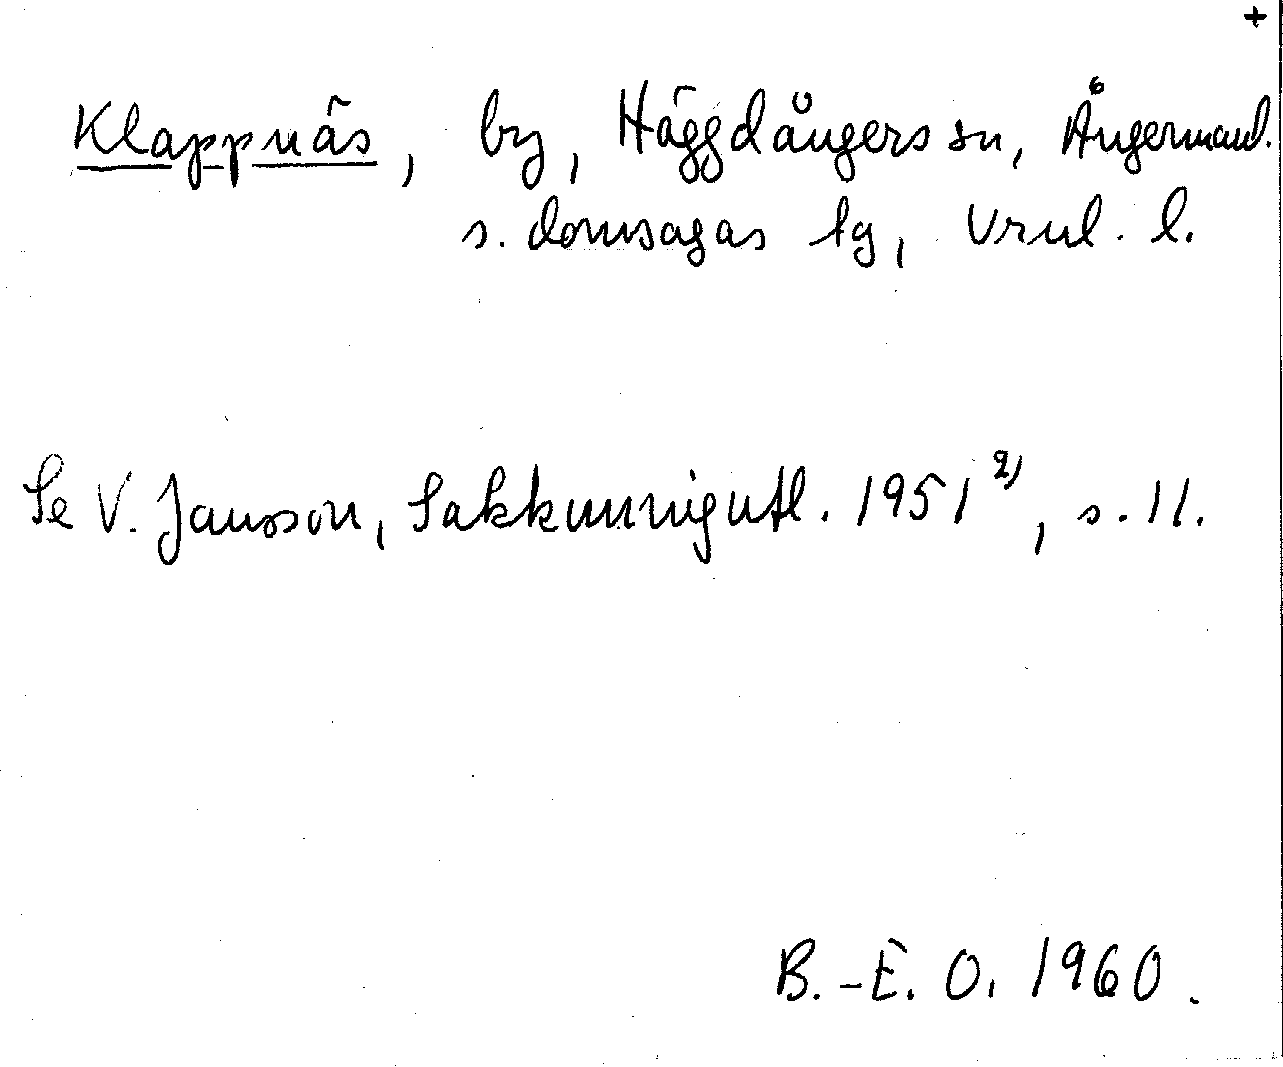 +
Klappnäs, by, Häggdångers sn, Ångermanl.
s. domsagas tg, Vrnl. l.
Se V. Jansson, Sakkunnigutl. 1951 2), s. 11.
B.-E. O. 1960.